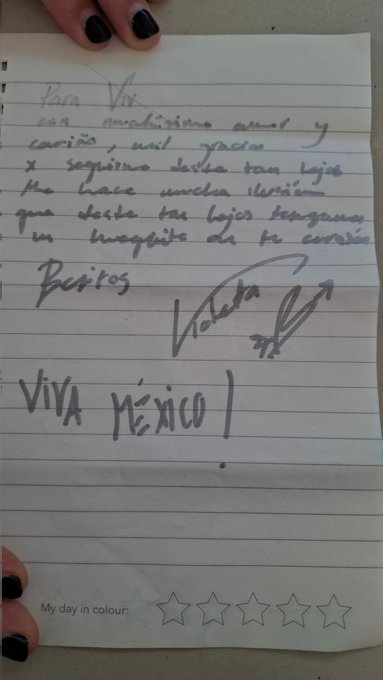 Para Viv
con muchísimo amor y
cariño, mil gracias
x seguirme desde tan lejos
Me hace mucha ilusión
que desde tan lejos tengamos
un huequito en tu corazón
Besitos
Violeta
VIVA MÉXICO!
My day in colour: